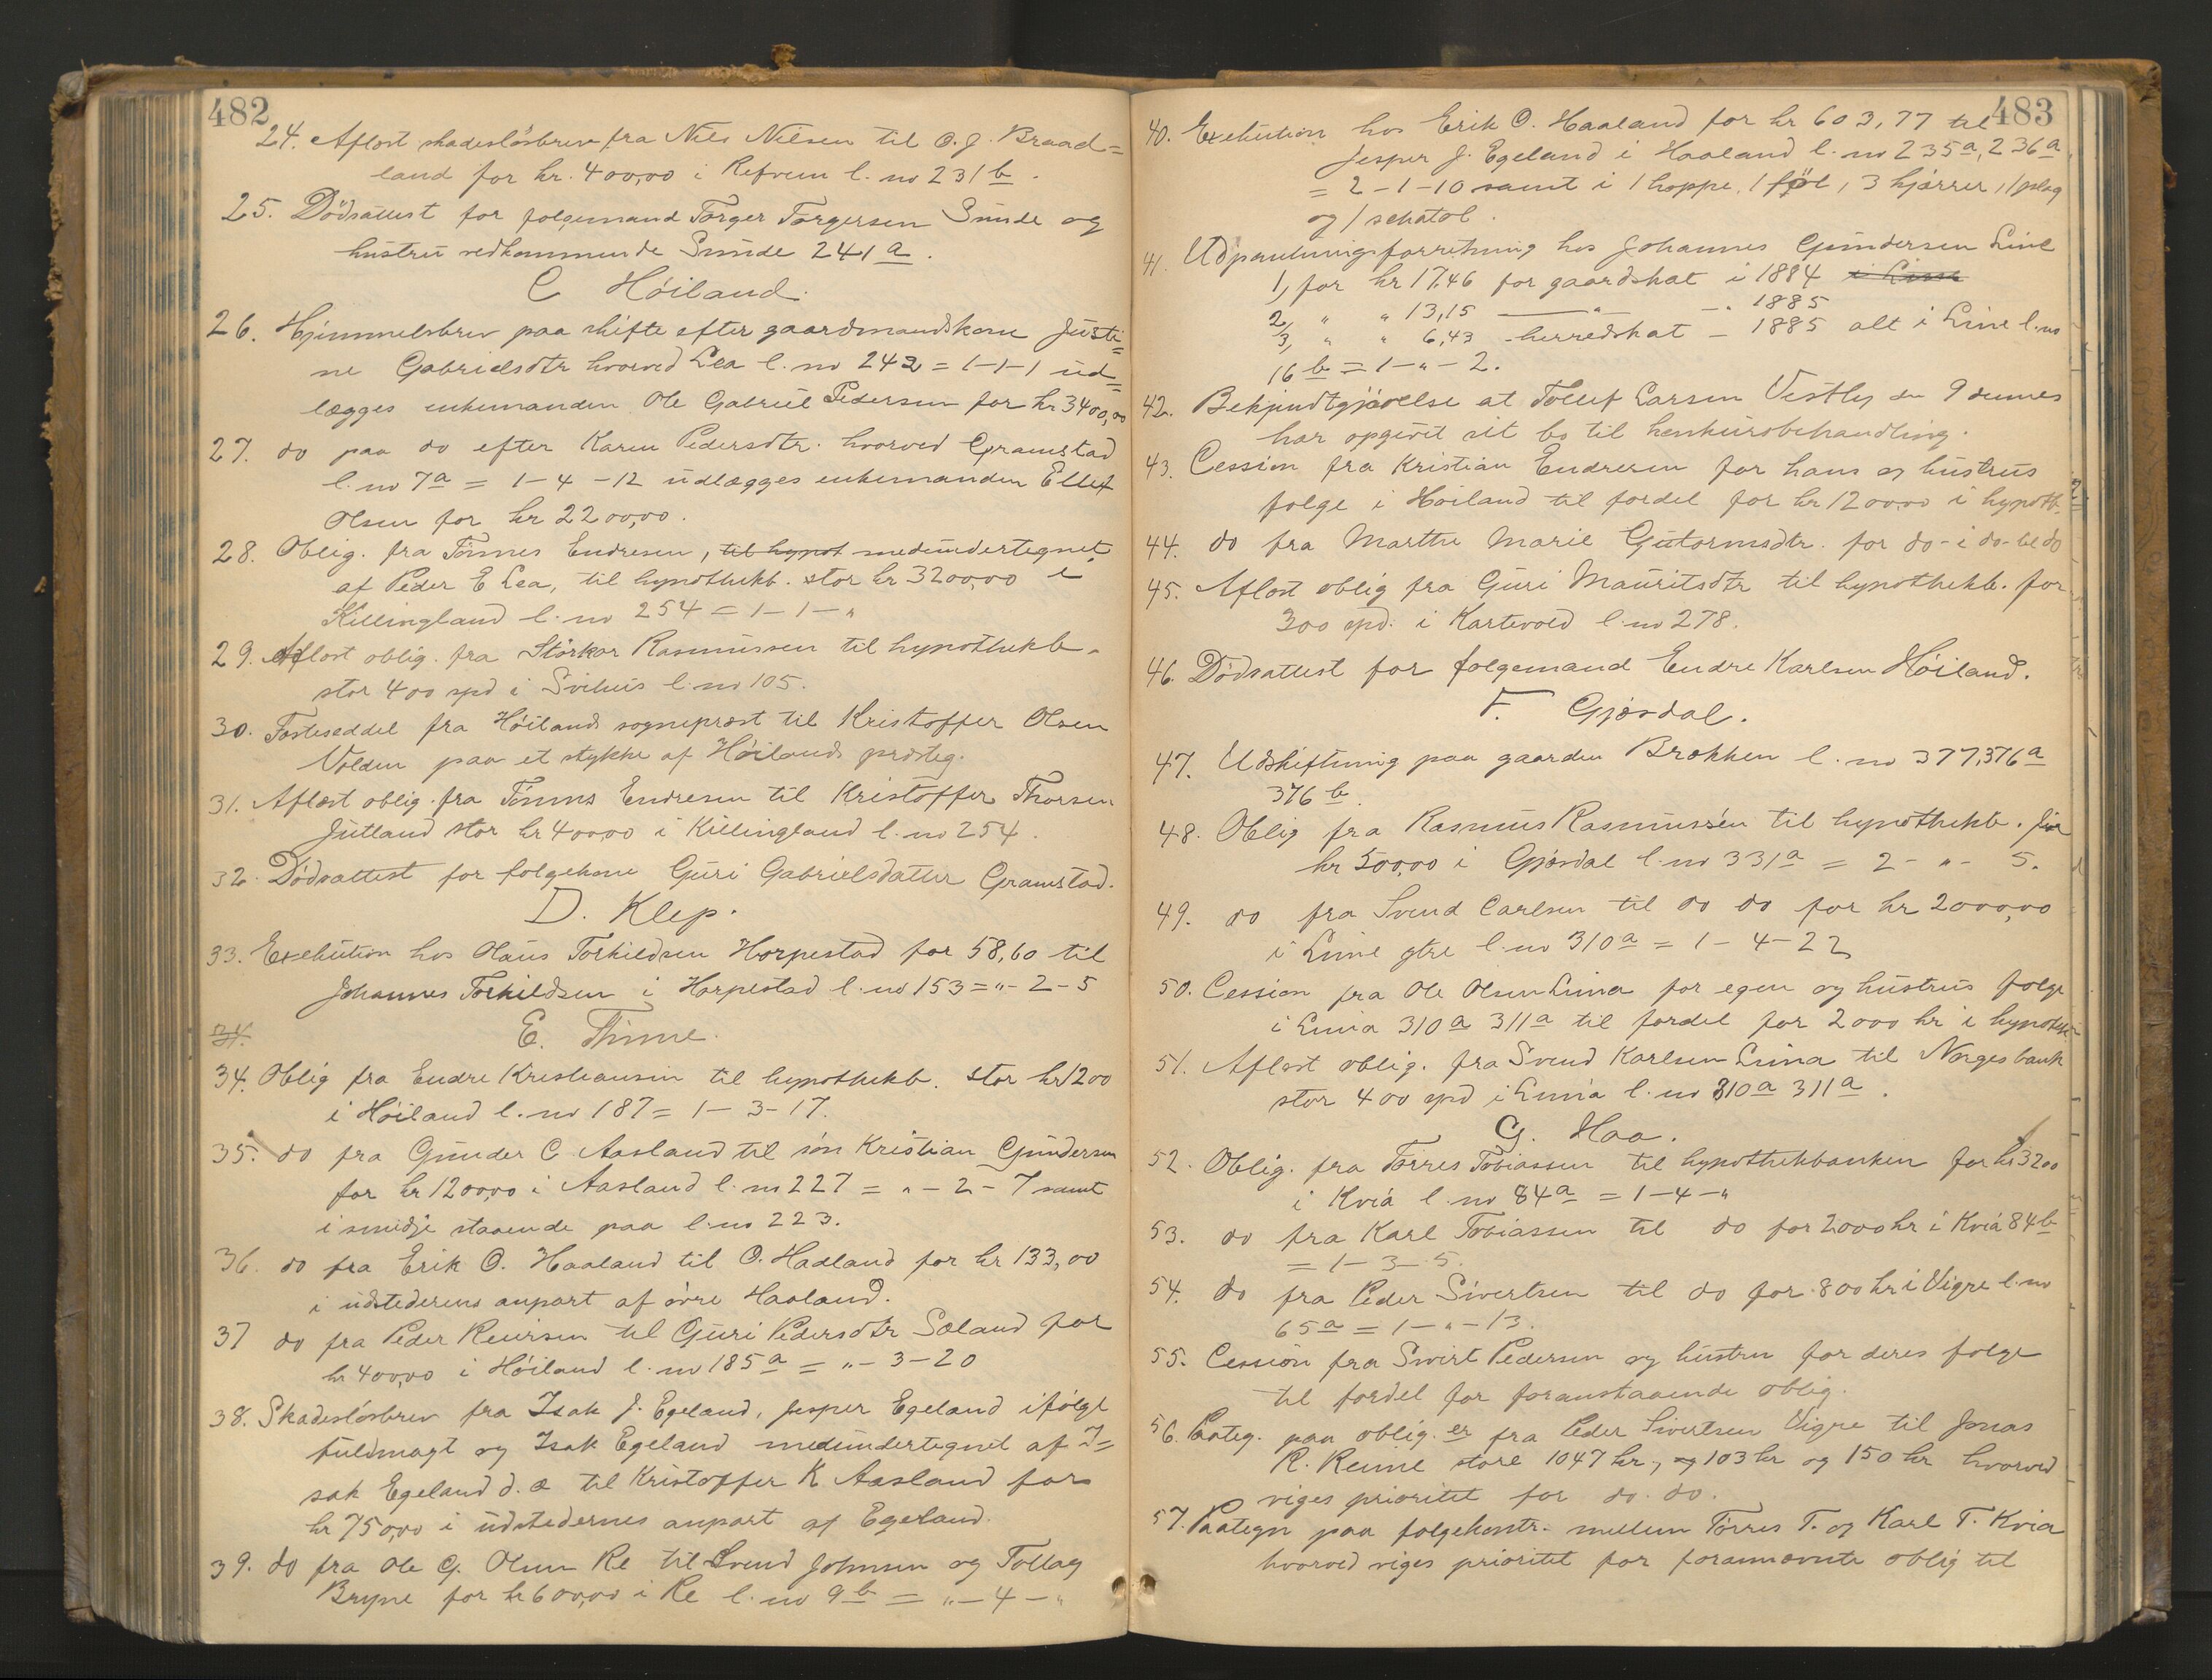 482
24. Aflæst skadeslösbrev fra Nils Nilsen til O. J. Braad=
land for kr. 400,00 i Refveim l. no 231 b.
25. Dödsattest for folgemand Torger Torgersen Sunde og
hustru vedkommende Sunde 241 a.
C Höiland.
26. Hjemmelsbrev paa skifte efter gaardmandskone Justi=
ne Gabrielsdtr hvorved Lea l. no 242 = 1-1-1 ud=
lægges enkemanden Ole Gabriel Pedersen for kr 3400,00
27. do paa do efter Karen Pedersdtr. hvorved Gramstad
l. no 7a = 1-4-12 udlægges enkemanden Ellef
Olsen for kr 2200,00.
28. Oblig. fra Tönnes Endresen, til hypot medundertegnet
af Peder E Lea, til hypothekb. stor kr 3200,00 i
Killingland l. no 254 = 1-1-"
29. Aflæst oblig. fra Störkor Rasmussen til hypothekb.
stor 400 spd i Svihus l. no 105.
30. Festeseddel fra Höilands sognepræst til Kristoffer Olsen
Volden paa et stykke af Höilands prdsteg.
31. Aflæst oblig. fra Tönnes Endresen til Kristoffer Thorsen
Jutland stor kr 400,00 i Killingland l. no 254.
32. Dödsattest for folgekone Guri Gabrielsdatter Gramstad.
D. Klep.
33. Exekution hos Olaus Torkildsen Horpestad for 58,60 til
Johannes Torkildsen i Horpestad l. no 153 = "-2-5
34.
E. Thime.
34. Oblig fra Endre Kristiansen til hypothekb. stor kr 1200
i Höiland l. no 187 = 1-3-17.
35. do fra Gunder C Aasland til sön Kristian Gundersen
for kr 1200,00 i Aasland l. no 227 = "-2-7 samt
i smidje staaende paa l. no 223.
36. do fra Erik O. Haaland til O. Hadland for kr 133,00
i udstederens anpart af övre Haaland.
37 do fra Peder Reiersen til Guri Pedersdtr Soland for
kr 400,00 i Höiland l. no 185 a = "-3-20
38. Skadeslösbrev fra Isak J. Egeland, Jesper Egeland ifölge
fuldmagt og Isak Egeland medundertegnet af I=
sak Egeland d. æ til Kristoffer K Aasland for
kr 750,00 i udstedernes anpart af Egeland.
39. do fra Ole G. Olsen Re til Svend Johnsen og Tollag
Bryne for kr 600,00 i Re l. no 9 b = "-4-"
483
40. Exekution hos Erik O. Haaland for kr 603,77 til
Jesper J. Egeland i Haaland l. no 235 a, 236 a
= 2-1-10 samt i 1 hoppe, 1 föl, 3 kjærrer, 1 plog
og 1 schatol.
41. Udpantningsforretning hos Johannes Gundersen Line
1, for kr 17,46 for gaardskat i 1884 i Line
2, " " 13,15 — " — - " 1885
3, " " 6,43 herredskat - 1885 alt i Line l. no
16 b = 1-"-2.
42. Bekjendtgjörelse at Tollef Larsen Vestly den 9 dennes
har opgivet sit bo til konkursbehandling.
43. Cession fra Kristian Endresen for hans og hustrus
folge i Höiland til fordel for kr 1200,00 i hypothb.
44. do fra Marthe Marie Gutormsdtr. for do i do til do
45. Aflæst oblig fra Guri Mauritsdtr til hypothekb. for
300 spd. i Kartevold l. no 278.
46. Dödsattest for folgemand Endre Karlsen Höiland.
F. Gjæsdal.
47. Udskiftning paa gaarden Brækken l. no 377, 376 a
376 b.
48. Oblig fra Rasmus Rasmussen til hypothekb. for
kr 500,00 i Gjæsdal l. no 331 a = 2-"-5.
49. do fra Svend Carlsen til do do for kr 2000,00
i Lime ytre l. no 310 a = 1-4-22
50. Cession fra Ole Olsen Lima for egen og hustrus folge
i Lima 310 a 311 a til fordel for 2000 kr i hypothek
51. Aflæst oblig. fra Svend Karlsen Lima til Norges bank
stor 400 spd i Lima l. no 310 a 311 a.
G. Haa.
52. Oblig. fra Törres Tobiassen til hypothekbanken for kr 3200
i Kviá l. no 84 a = 1-4-"
53. do fra Karl Tobiassen til do for 2000 kr i Kviá 84 b
= 1-3-5.
54. do fra Peder Sivertsen til do for 800 kr i Vigre l. no
65 a = 1-"-13.
55. Cession fra Sivert Pedersen og hustru for deres folge
til fordel for foranstaaende oblig.
56. Paateg. paa oblig. er fra Peder Sivertsen Vigre til Jonas
R. Reime store 1047 kr, og 103 kr og 150 kr hvorved
viges prioritet for do. do.
57. Paategn paa folgekontr. mellem Törres T. og Karl T. Kvia
hvorved viges prioritet for forannævnte oblig til